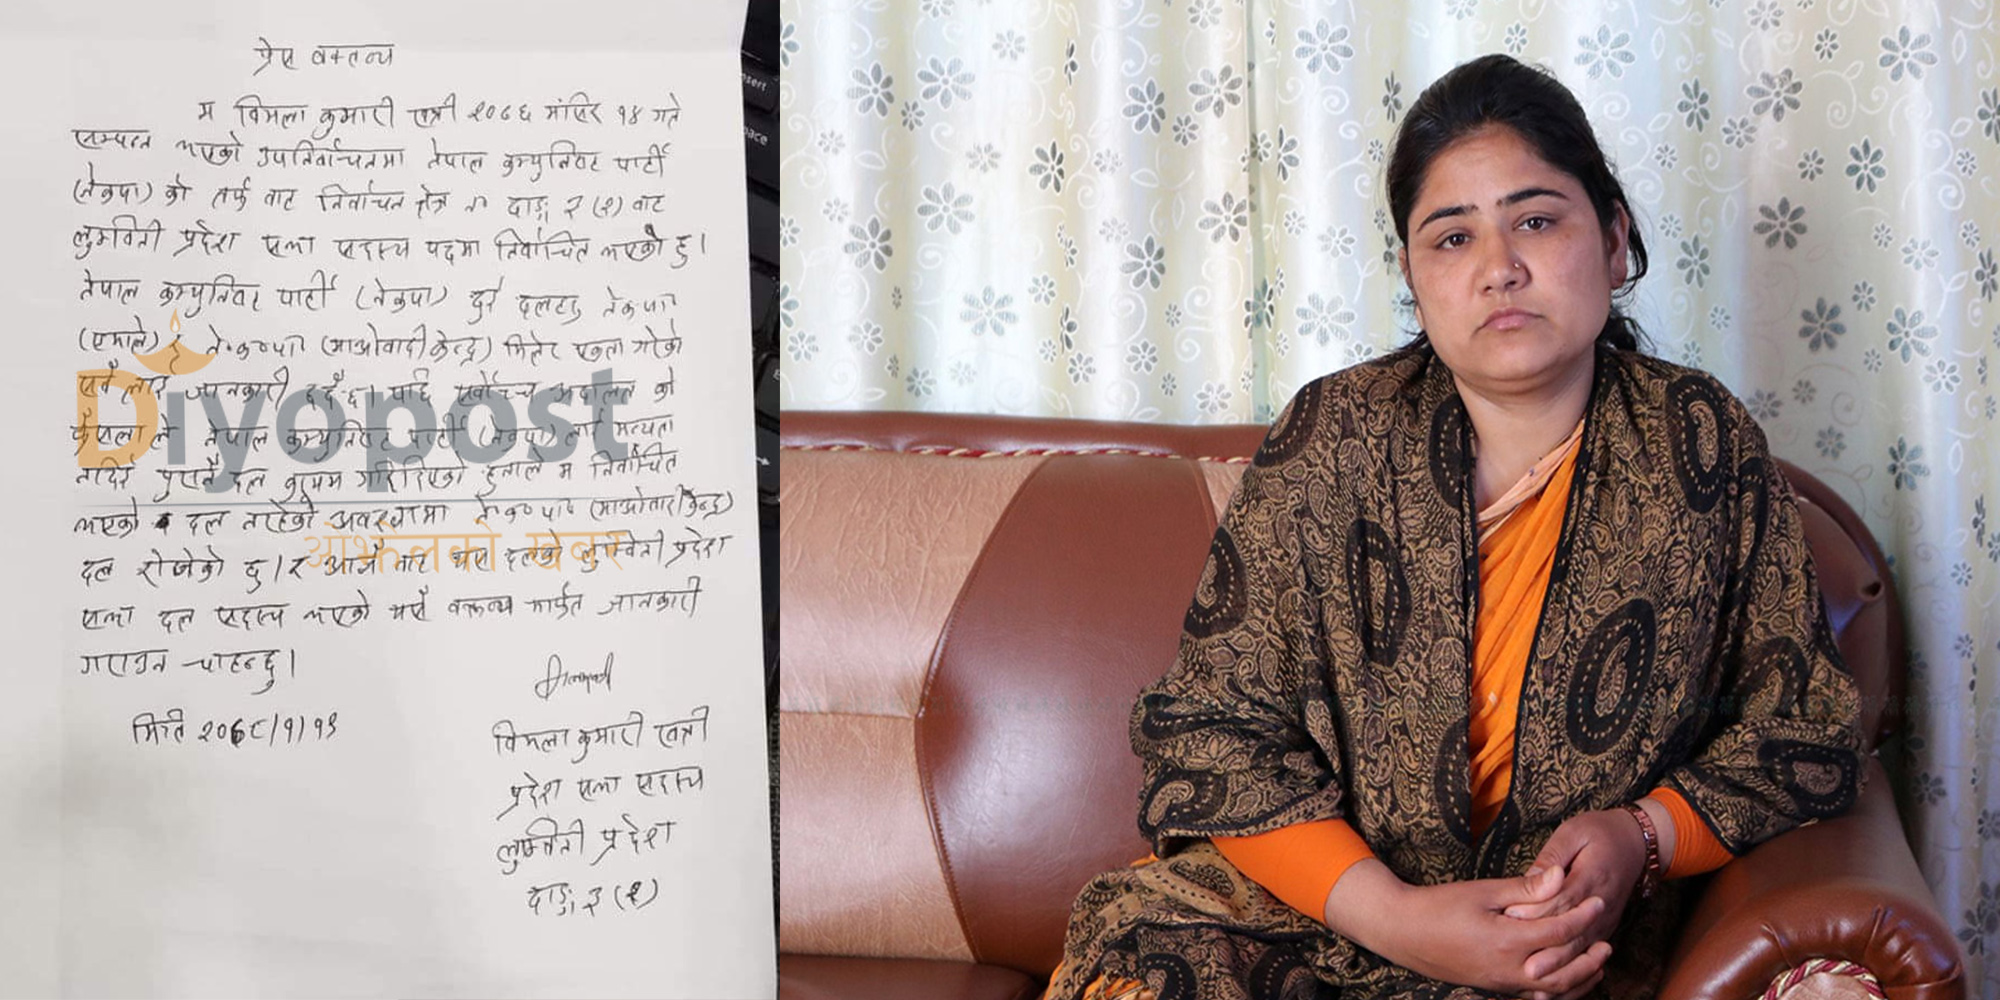 प्रेस वक्तव्य
म विमला कुमारी खत्री २०७६ मंसिर १४ गते
सम्पन्न भएको उपनिर्वाचनमा नेपाल कम्युनिष्ट पार्टी
(नेकपा) को तर्फ बाट निर्वाचन क्षेत्र नं दाङ
लुम्विनी प्रदेश सभा सदस्य पदमा निर्वाचित भएको हु।
नेपाल कम्युनिष्ट पार्टी (नेकपा) दुई दलहरु
(एमाले) र (माओवादी केन्द्र) मिलेर एकता गरेको
सबै लाई जानकारी नै छ। सर्वोच्च अदालत को
फैसला ले नेपाल कम्युनिष्ट पार्टी (नेकपा) लाई मान्यता
नदिई पुरानै दल कायम गरिदिएको हुनाले म निर्वाचित
भएको दल नरहेको अवस्थामा (माओवादी केन्द्र)
दल रोजेको छु। र आजै बाट यस दलको लुम्विनी प्रदेश
सभा दल सदस्य भएको यसै वक्तव्य मार्फत जानकारी
गराउन चाहन्छु।
मिति २०७८/१/१३
विमला कुमारी खत्री
प्रदेश सभा सदस्य
लुम्विनी प्रदेश
दाङ
Diyopost
आँखैझ्यालको खबर